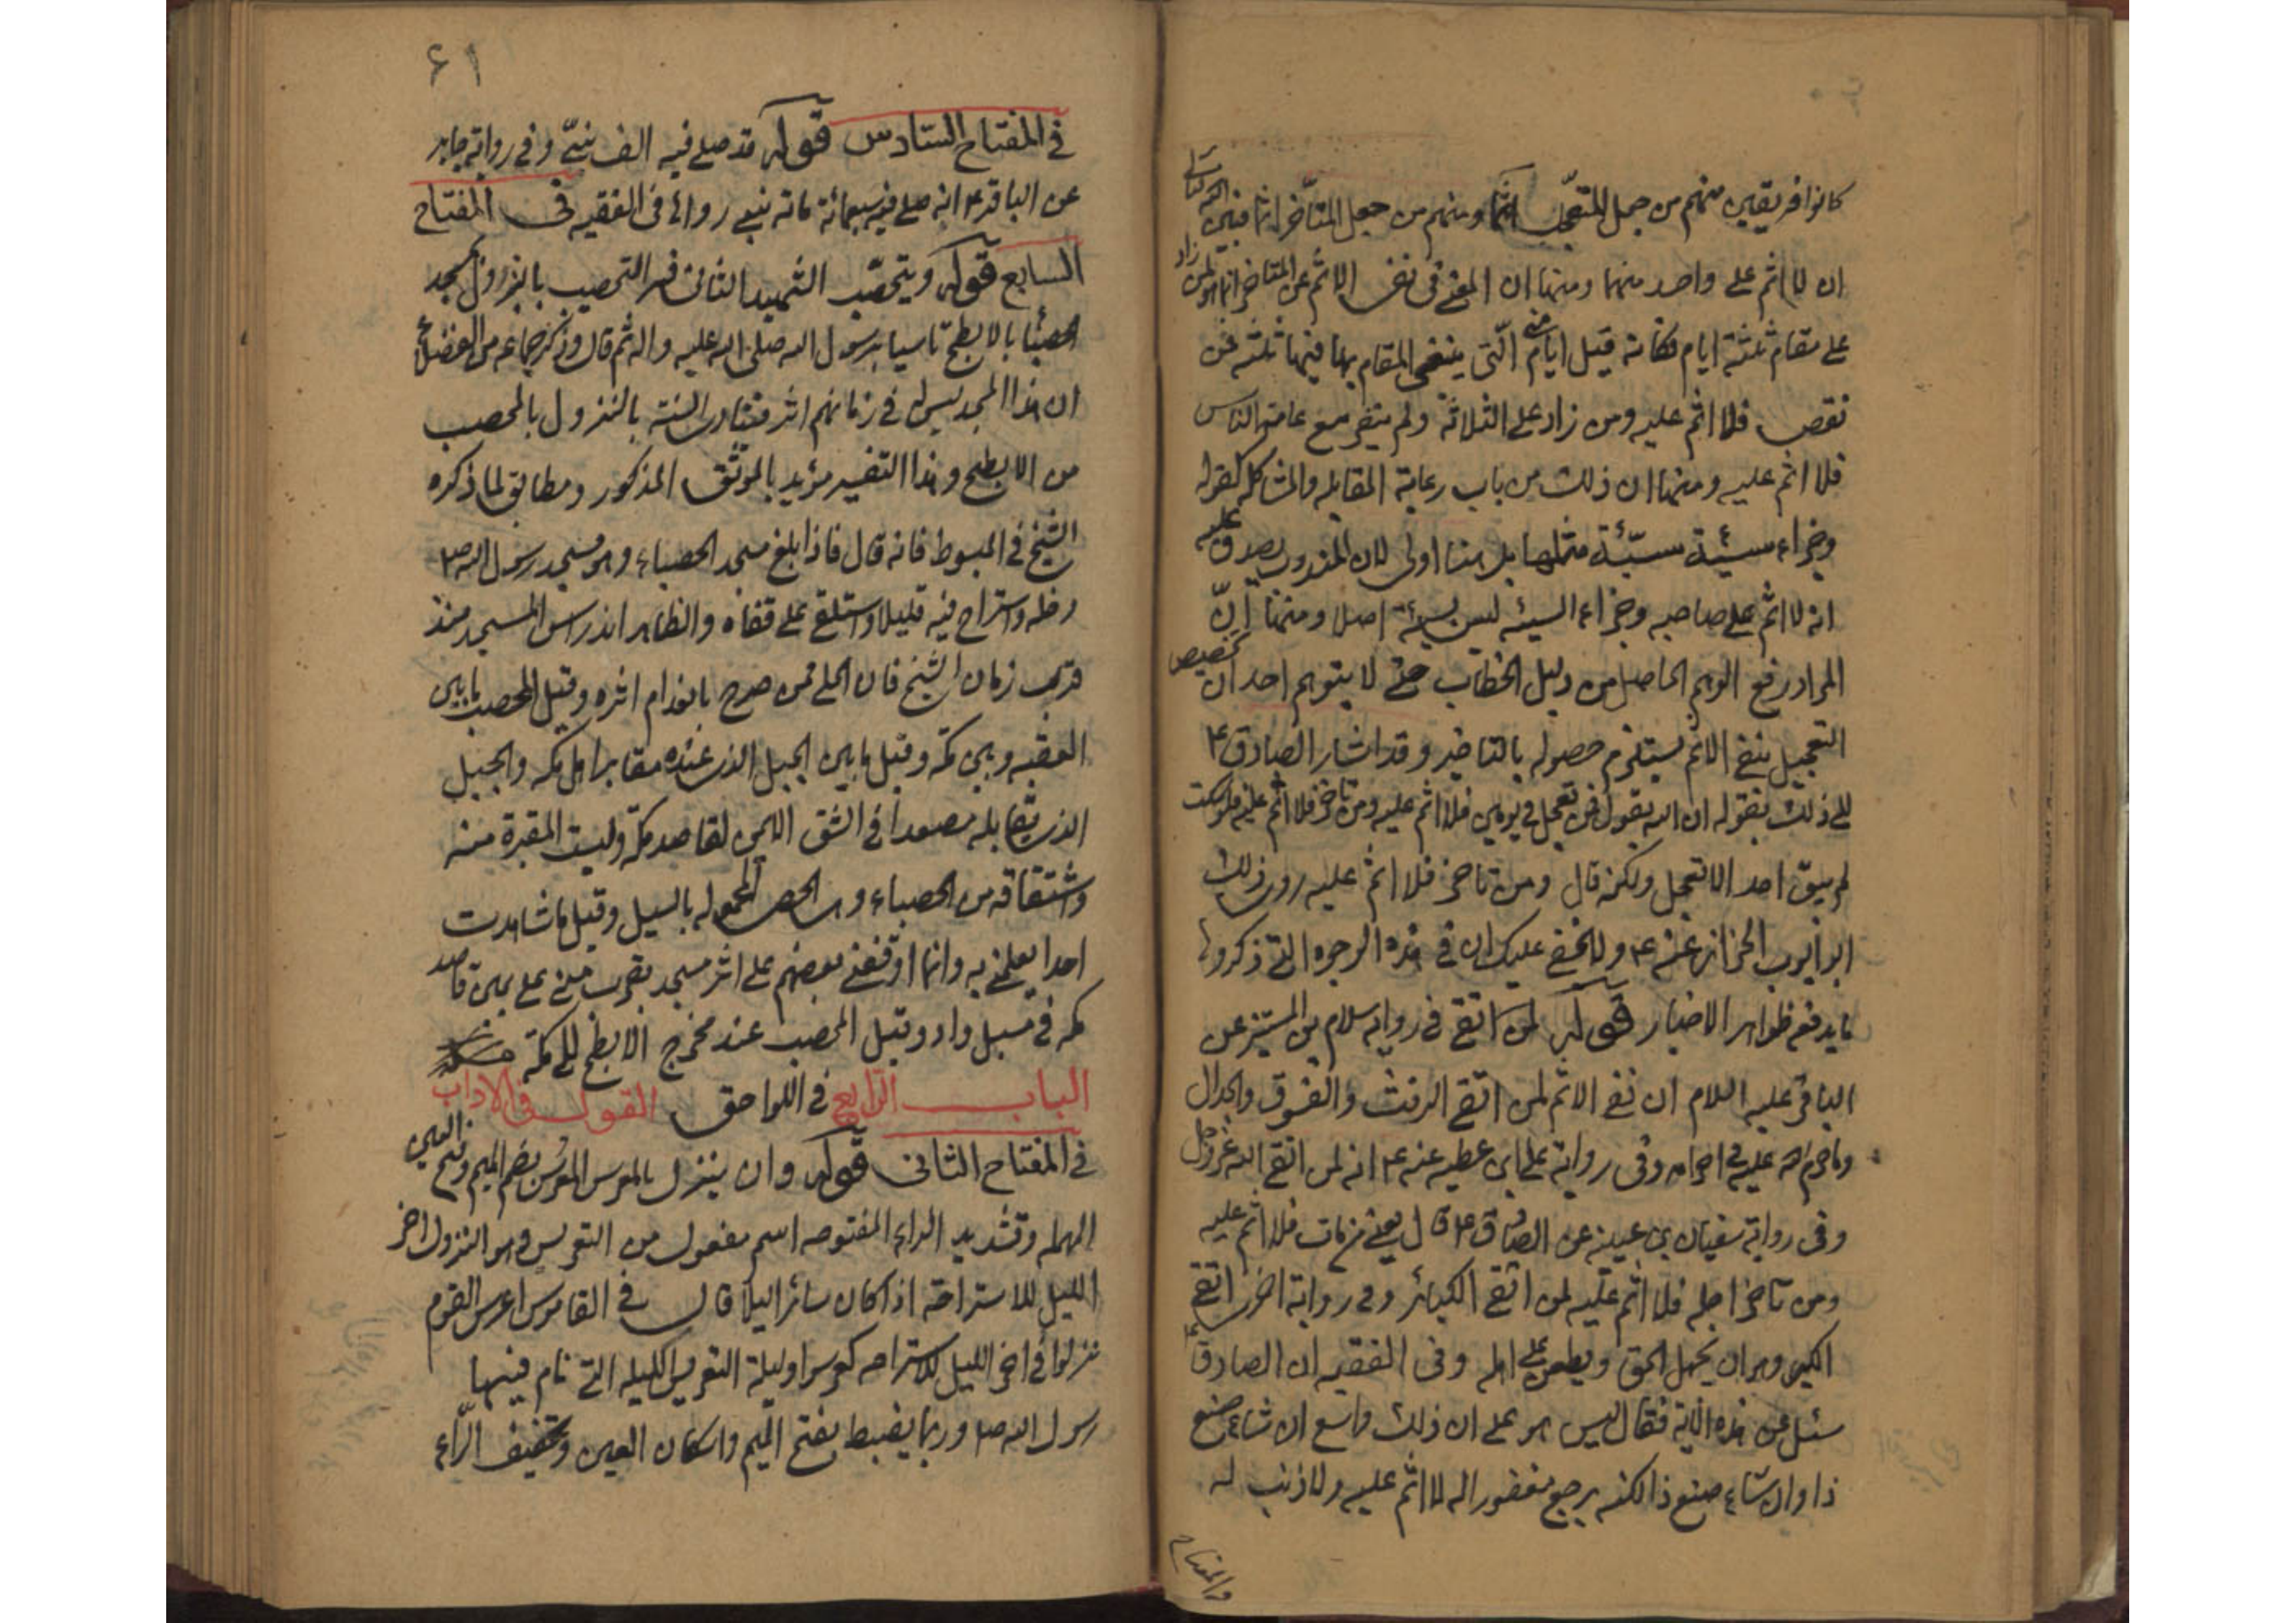 كانوا فريقين منهم من جعل المتعجل آثما ومنهم من جعل المتأخر آثما فبين الله تعالى
ان لا اثم على واحد منهما ومنها ان المعنى فى نفى الاثم عن المتأخر انما هو لمن زاد
على مقام ثلثة ايام فكانه قيل ايام منى الّتى ينبغى المقام بها فيها ثلثة فمن
نقص فلا اثم عليه ومن زاد على الثلاثة ولم ينفر مع عامة الناس
فلا اثم عليه ومنها ان ذلك من باب رعاية المقابله والمشاكله كقوله
وجزاء سيئة سيّئة مثلها بل هنا اولى لان المندوب يصدق عليه
انه لا اثم على صاحبه وجزاء السيئه ليس بسيئة اصلا ومنها انّ
المراد رفع الوهم الحاصل من دليل الخطاب حتى لا يتوهم احد ان تخصيص
التعجيل بنفى الاثم يستلزم حصوله بالتاخير وقد اشار الصادق ع
الى ذلك بقوله ان الله يقول فمن تعجل فى يومين فلا اثم عليه ومن تاخر فلا اثم عليه فلو سكت
لم يبق احد الا تعجل ولكنه قال ومن تاخر فلا اثم عليه روى ذلك
ابو ايوب الخزاز عنه ع ولا يخفى عليك ان فى هذه الوجوه التى ذكروها
ما يدفعه ظواهر الاخبار قوله لمن اتقى فى رواية سلام بن المستنير عن
الباقر عليه السلام ان نفى الاثم لمن اتقى الرفث والفسوق والجدال
وما حرم الله عليه فى احرامه وفى رواية على بن عطيه عنه ع انه لمن اتقى الله عز وجل
وفى رواية سفيان بن عيينه عن الصادق ع قال يعنى من مات فلا اثم عليه
ومن تاخر اجله فلا اثم عليه لمن اتقى الكبائر وفى رواية اخرى اتقى
الكبر وهو ان يجهل الحق ويطعن على اهله وفى الفقيه ان الصادق ع
سئل عن هذه الاية فقال ليس هو على ان ذلك واسع ان شاء صنع
ذا وان شاء صنع ذا لكنه يرجع مغفورا له لا اثم عليه ولا ذنب له
والمفتاح
٤١
فى المفتاح السّادس قوله قد صلى فيه الف نبىّ وفى رواية جابر
عن الباقر ع انه صلى فيه سبعمائة مائة نبى رواه فى الفقيه فى المفتاح
السابع قوله ويتحصّب الشهيد الثانى فسر التحصيب بالنزول بمسجد
الحصبا بالابطح تاسيا برسول الله صلى الله عليه واله ثم قال وذكر جماعه من الفضلاء
ان هذا المسجد ليس له فى زمانهم اثر فتتادى السنة بالنزول بالمحصب
من الابطح وهذا التفسير مؤيد بالموثق المذكور ومطابق لما ذكره
الشيخ فى المبسوط فانه قال فاذا بلغ مسجد الحصباء وهو مسجد رسول الله ص
دخله واستراح فيه قليلا واستلقى على قفاه والظاهر اندراس المسجد منذ
قرب زمان الشيخ فان الحلى ممن صرح بانعدام اثره وقيل المحصب ما بين
العقبه وبين مكه وقيل ما بين الجبل الذى عنده مقابر اهل مكه والجبل
الذى يقابله مصعدا فى الشق الايمن لقاصد مكّه وليست المقبرة منه
واشتقاقه من الحصباء وهى الحصى المحموله بالسيل وقيل ما شاهدت
احدا يعلمنى به وانما اوقفنى بعضهم على اثر مسجد بقرب منى على يمين قاصد
مكه فى مسيل واد وقيل المحصب عند مخرج الابطح الى مكّة
الباب الرابع فى اللواحق القول فى الاداب
فى المفتاح الثانى قوله وان ينزل بالمعرس المعرّس بضم الميم وفتح العين
المهمله وتشديد الراء المفتوحه اسم مفعول من التعريس وهو النزول اخر
الليل للاستراحة اذا كان سائرا ليلا قال فى القاموس اعرس القوم
نزلوا فى اخر الليل للاستراحه كعرسوا وليلة التعريس الليله التى نام فيها
رسول الله ص وربما يضبط بفتح الميم واسكان العين وتخفيف الرّاء